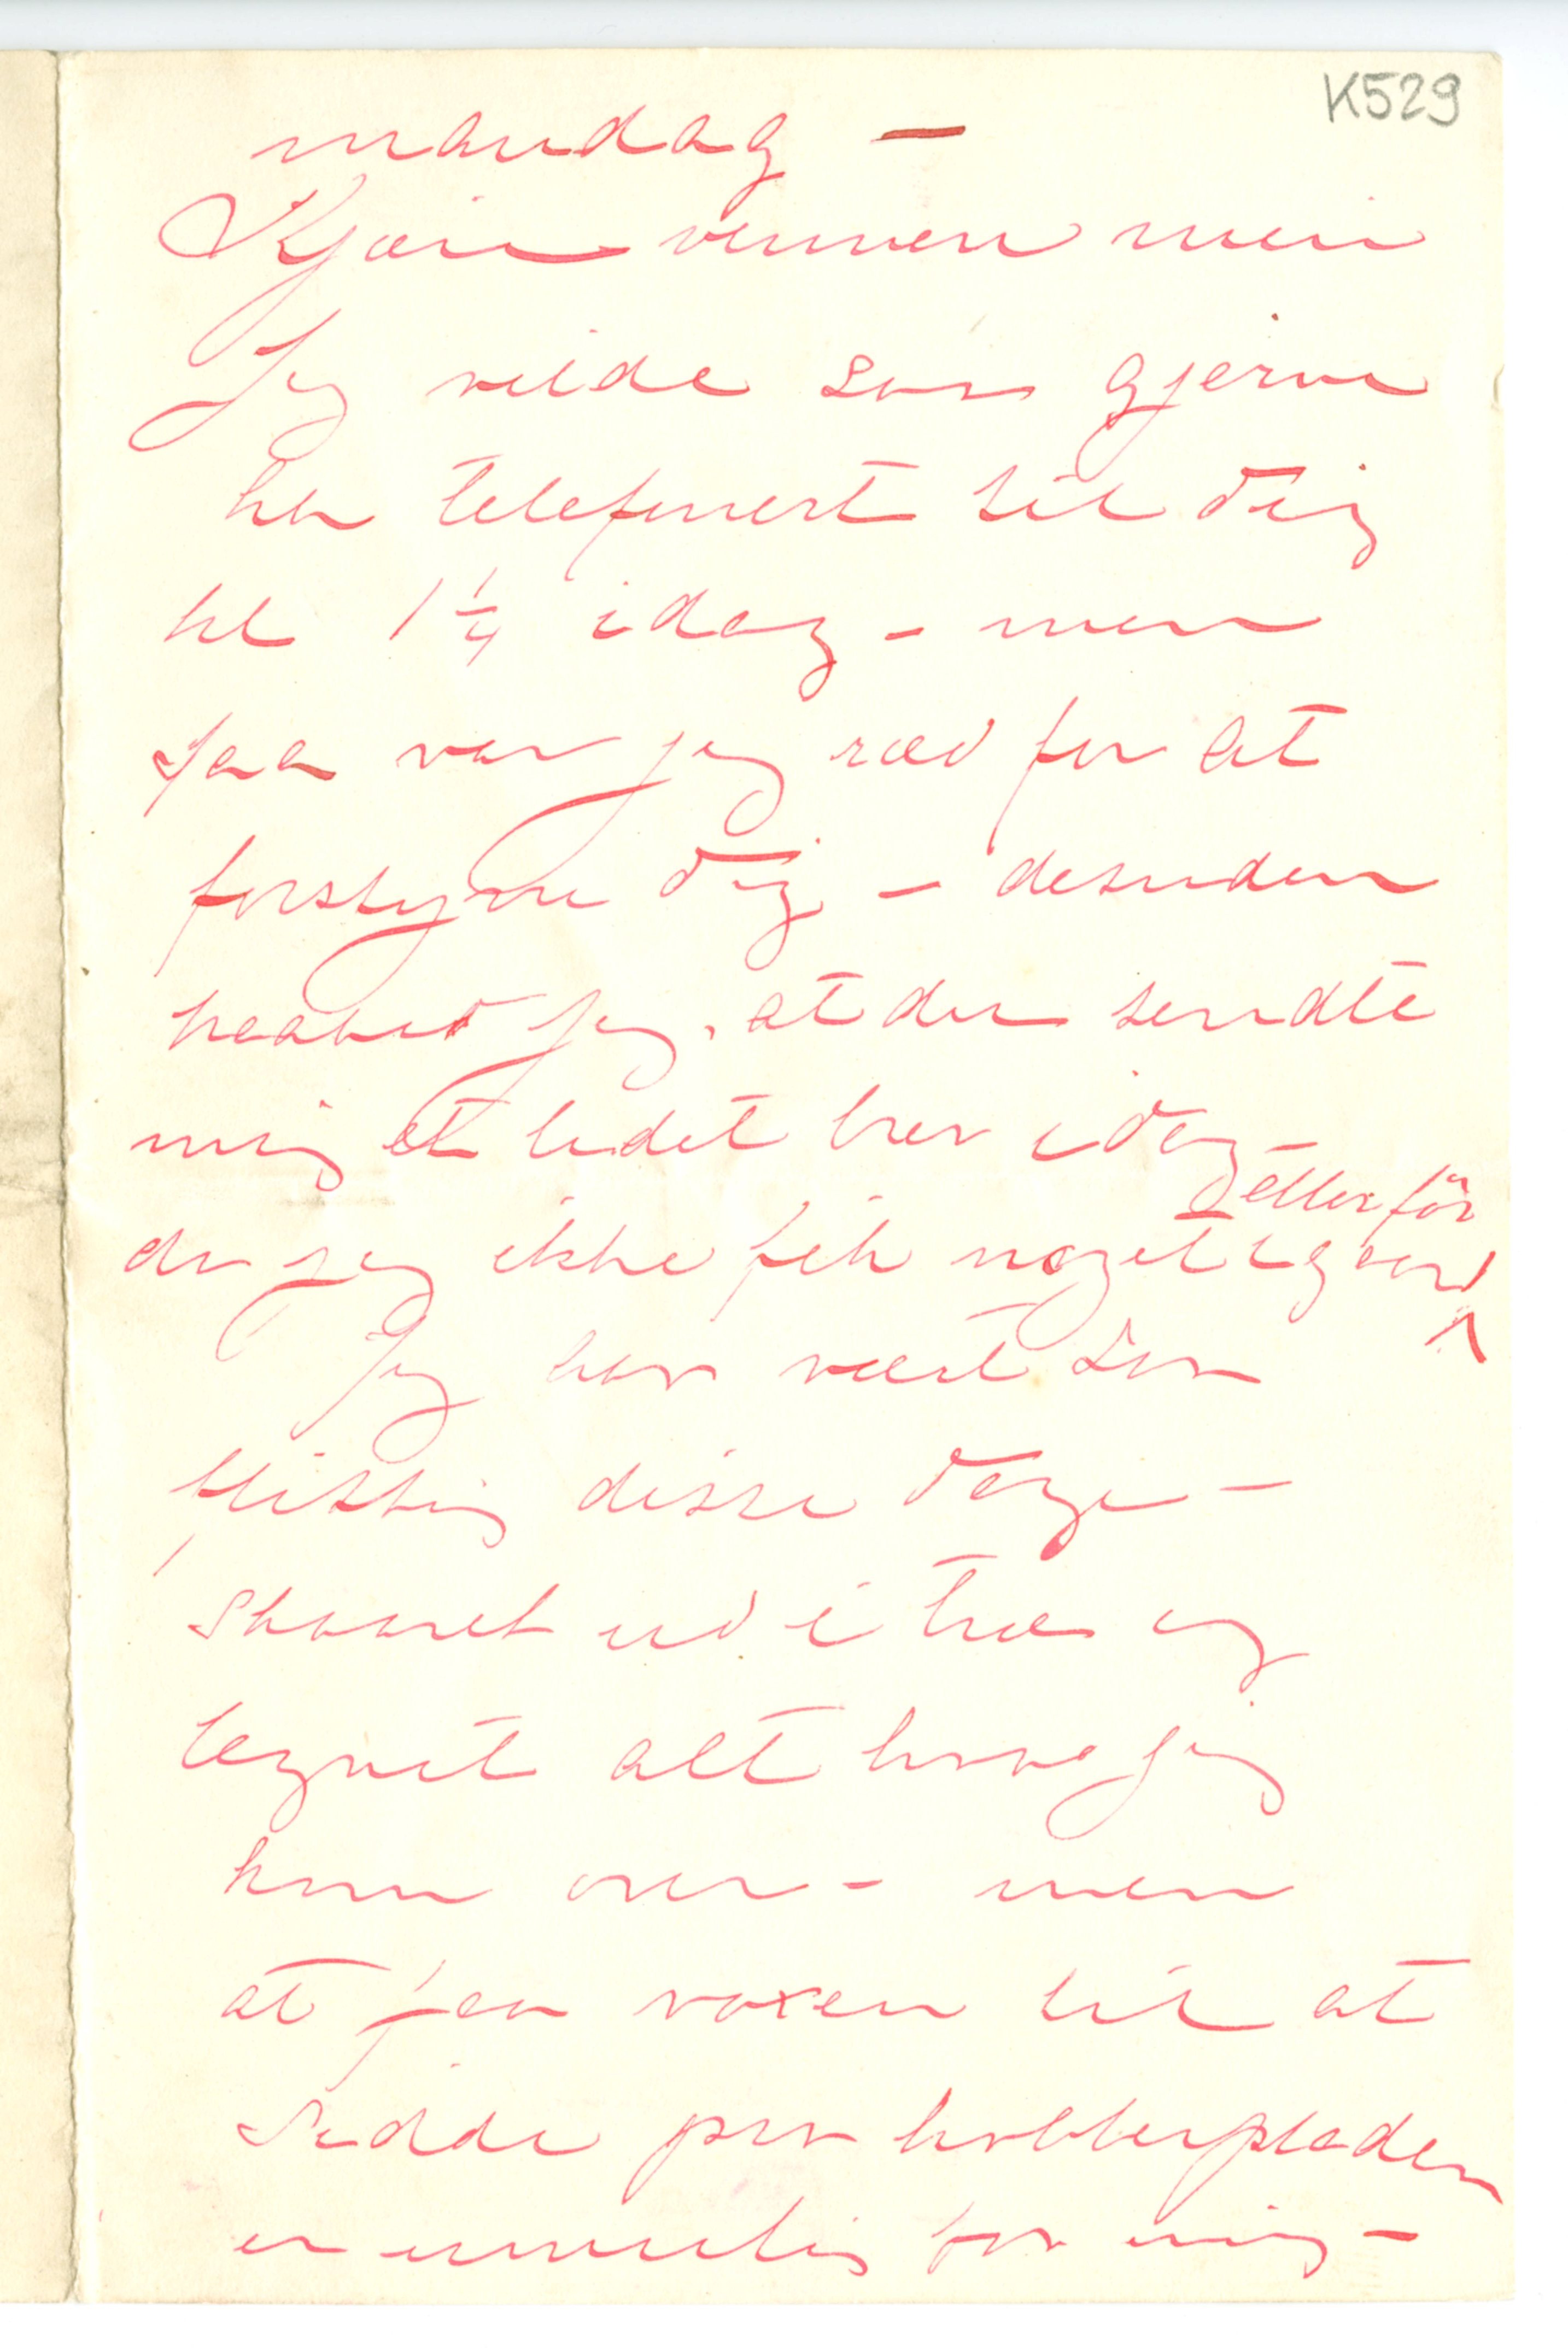 K529
mandag —
Kjære vennen min
Jeg vilde saa gjerne
ha telefonert til dig
kl 1 1/4 idag – men
saa var jeg ræd for at
forstyrre dig – desuden
haabed jeg, at du sendte
mig et lidet brev idag –
da jeg ikke fik noget igaar eller før
Jeg har vært saa
flittig disse dage –
skaaret ud i træ og
tegnet alt hvad jeg
kom over – men
at faa voxen til at
sidde paa kobberpladen
er umulig for mig –